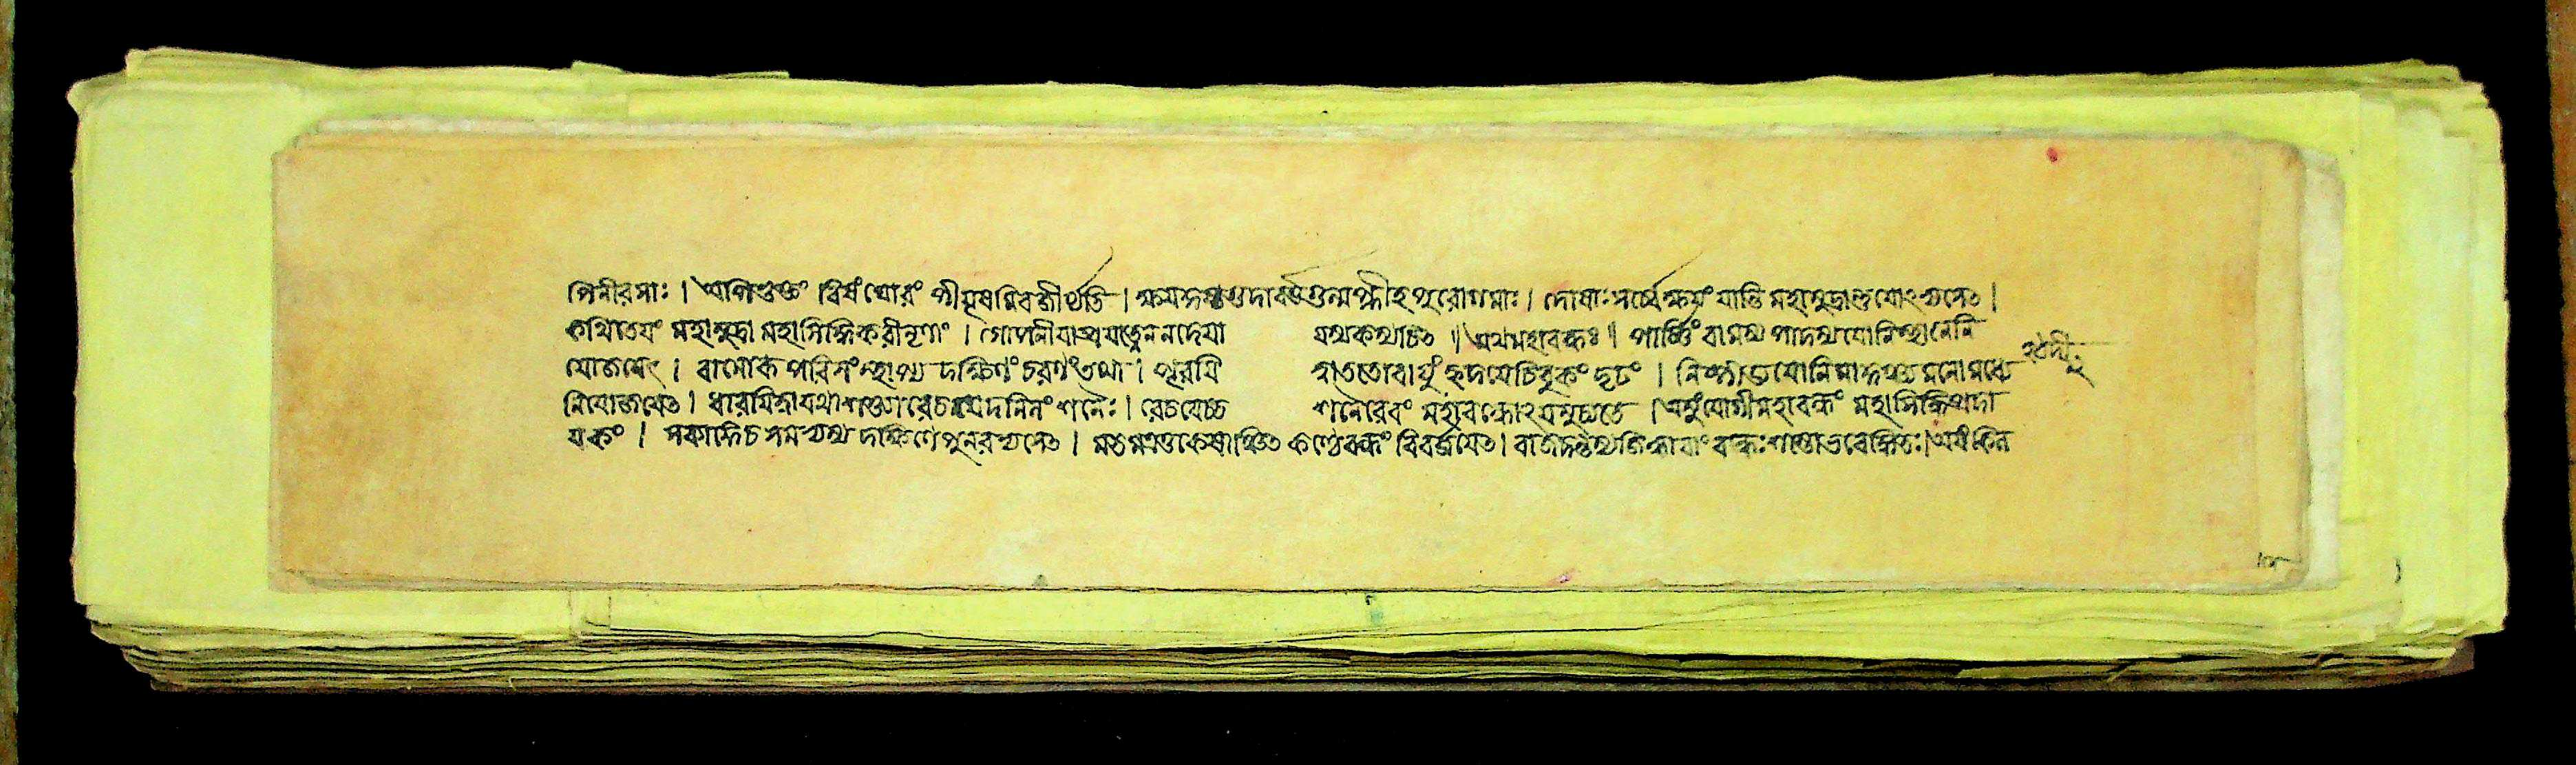 পিনীরসাঃ । অপিভুক্তং বিষংঘোরং পীযূষমিবজীর্যতি । ক্ষয়কুষ্ঠগুদাবর্ত্তগুল্মপ্লীহপুরোগমাঃ । দোষাঃ সর্ব্বে ক্ষয়ং যান্তি মহামুদ্রান্তুযোঽভ্যসেৎ ।
কথিতেয়ং মহামুদ্রা মহাসিদ্ধিকরীনৃণাং । গোপনীয়াপ্রযত্নেননদেয়া যস্যকস্যচিৎ ॥ অথমহাবন্ধঃ ॥ পার্ষ্ণিং বামস্য পাদস্য যোনিস্থানেনি
যোজয়েৎ । বামোরূপরিসংস্থাপ্য দক্ষিণং চরণং তথা । পূরয়ি ত্বাততোবায়ুং হৃদয়েচিবুকং দৃঢং । নিষ্পীড্যযোনিমাকুঞ্চ্যমনোমধ্যে
নিযোজয়েৎ । ধারয়িত্বাযথাশক্ত্যারেচয়েদনিলং শনৈঃ । রেচয়েচ্চ শনৈরেবং মহাবন্ধোঽয়মুচ্যতে । অয়ংযোগীমহাবন্ধং মহাসিদ্ধিপ্রদা
য়কং । সব্যাঙ্গেচ সমভ্যস্য দক্ষিণাঙ্গেপুনরভ্যসেৎ । মতমত্রতুকেষাঞ্চিৎ কণ্ঠেবন্ধং বিবর্জ্জয়েৎ । রাজদন্তস্থজিহ্বায়াং বন্ধঃশস্তোভবেদিতি । অয়ং